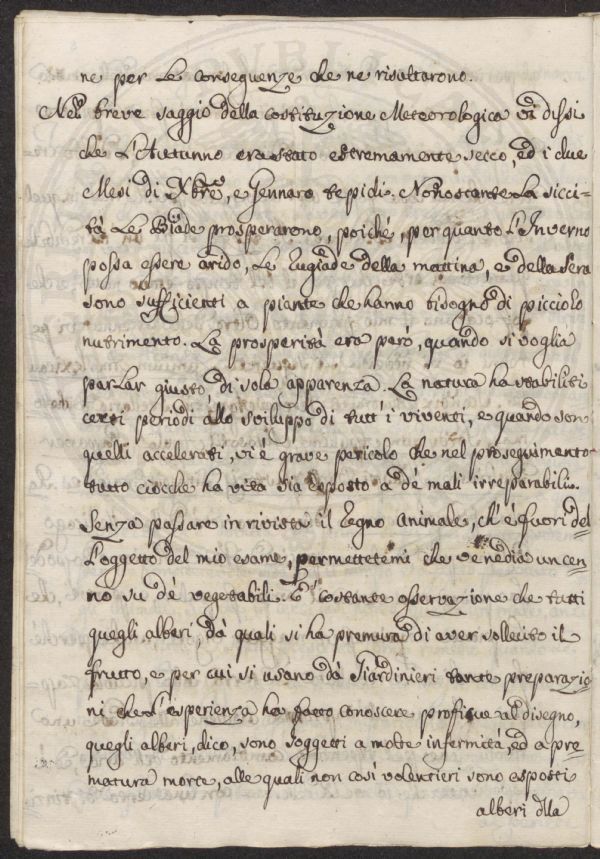 ne per le conseguenze che ne risultarono.
Nel breve saggio della costituzione Meteorologica vi dissi
che l'Autunno era stato estremamente secco, ed i due
Mesi di Xbre, e Gennaro tepidi. Nonostante la sicci-
tà le Biade prosperarono, poiché, per quanto l'Inverno
possa essere arido, le rugiade della mattina, e della sera
sono sufficienti a piante che hanno bisogno di picciolo
nutrimento. La prosperità era però, quando si voglia
parlar giusto, di sola apparenza. La natura ha stabiliti
certi periodi allo sviluppo di tutt'i viventi, e quando son
quelli accelerati, vi è grave pericolo che nel proseguimento
tutto ciocche ha vita sia esposto a de' mali irreparabili.
Senza passare in rivista il regno animale, ch'è fuori del
l'oggetto del mio esame, permettetemi che ve ne dia un cen=
no su de' vegetabili. È costante osservazione che tutti
quegli alberi, dà quali si ha premura di aver sollecito il
frutto, e per cui si usano dà Giardinieri tante preparazio
ni che l'esperienza ha fatto conoscere proficue al disegno,
quegli alberi, dico, sono soggetti a molte infermità, ed a pre=
matura morte, alle quali non così volentieri sono esposti
alberi dlla